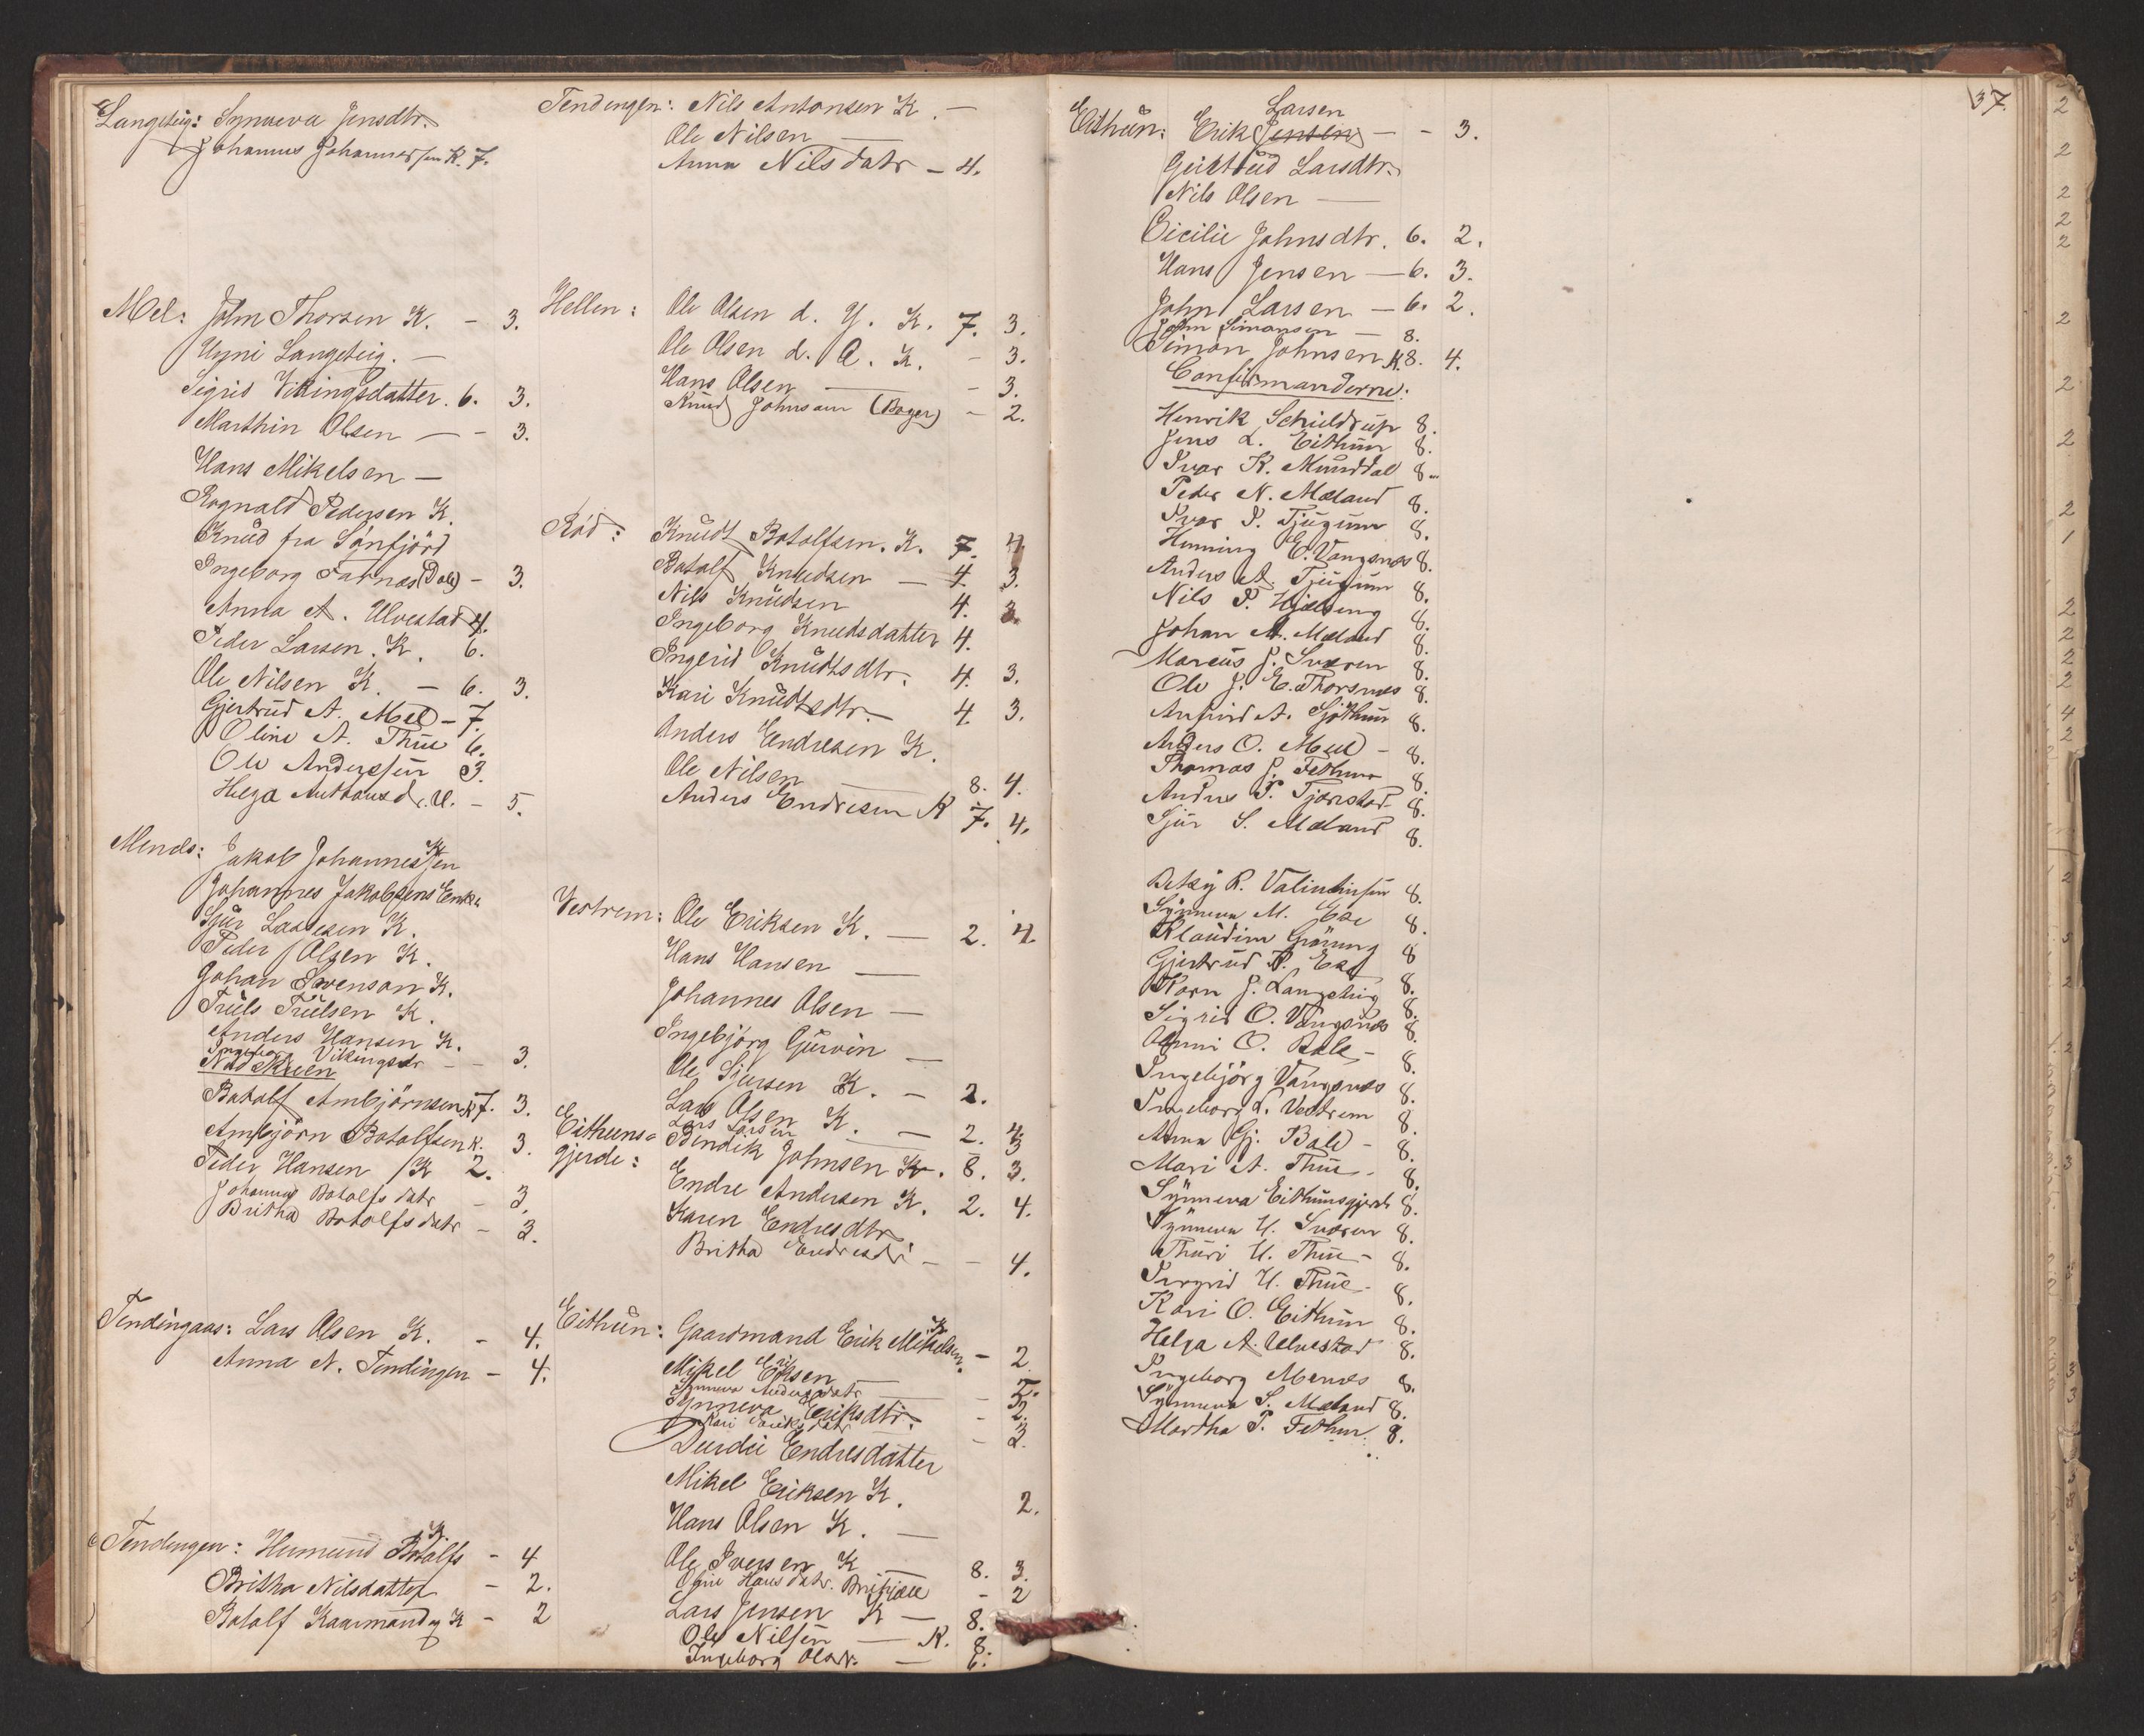 Langeteig: Synneva Jensdtr.
Johannes Johannessen K. 7.
Mel: John Thorsen K. - 3.
Langeteig. —
Sigrid Vikingsdatter. 6. 3.
Marthin Olsen — - 3.
Hans Mikelsen —
Rognald Pedersen K.
Knud fra Sönfjörd
Ingeborg Farnæs (Dale) - 3.
Anna A. Ulvestad 4.
Peder Larsen. K. 6.
Ole Nilsen K. — 6. 3.
Gjertrud A. Mel - 7.
Oline A. Thue 6.
Ole Anderssen 3.
Helga U. - 5.
Menæs: Jakob Johannessen K
Johannes Jakobsens Enke
Sjur Lassesen K.
Peder Olsen K.
Johan Svenson K.
Truls Trulsen K.
Anders Hansen K.
Ingeborg Vikingsdr — - 3.
Nedskreen
Botolf Ambjörnsen K 7. 3.
Ambjörn Botolfsen K. 3.
Peder Hansen K 2.
Johanna Botolfsdatr - 3.
Britha Botolfsdatr - 3.
Tendingaas: Lars Olsen K. - 4.
Anna N. Tendingen - 4.
Tendingen: Hermund Botolfs K. - 4
Britha Nilsdatter - 2.
Botolf K - 2
Tendingen: Nils Antonsen K. —
Ole Nilsen —
Anna Nilsdatr - 4.
Hellen: Ole Olsen d. Y. K. 7. 3.
Ole Olsen d. Æ. K. - 3.
Hans Olsen — - 3.
Knud Johnsen (Bager) - 2.
Röd: Knudt Botolfsen. K. 7. 4.
Botolf Knudsen — 4. 3.
Nils Knudsen 4. 3.
Ingeborg Knudsdatter 4.
Ingerid Knudtsdtr. 4. 3.
Kari Knudtsdtr. — 4. 3.
Anders Endresen K.
Ole Nilsen — 8. 4.
Anders Endresen K 7. 4.
Vestrem: Ole Eriksen K. — 2. 4.
Hans Hansen —
Johannes Olsen —
Ingebjörg Gurvin —
Ole Sjursen K. - 2.
Lars Olsen K. — 2. 4.
Lars Larsen 3
Eithuns=
gjerde: Bendik Johnsen K. 8. 3.
Endre Andersen K. 2. 4.
Karen Endresdtr.
Britha Endresdr — - 4.
Eithun: Gaardmand Erik Mikelsen K. - 2.
Mikel Eriksen — - 2.
Synneva Andersdatr
Synneva Eriksdtr. - 2.
Kari Eriksdatr - 2.
Durdei Endresdatter
Mikel Eriksen K. 2.
Hans Olsen K. —
Ole Iversen K — 8. 3.
Hansdatr. - 2
Lars Jensen K — 8.
Ole Nilsen — K. 8.
Ingeborg Olsdtr. — 6.
37.
Larsen
Eithun: Erik Jensen — - 3.
Gjertrud Larsdtr.
Nils Olsen —
Cicilie Johnsdtr. 6. 2.
Hans Jensen — 6. 3.
John Larsen — 6. 2.
John Simonsen — 8.
Simon Johnsen K. 8. 4.
Confirmanderne:
Henrik Schieldrup 8.
Jens L. Eithun 8.
Ivar K. Munddal 8.
Peder N. Mæland 8.
Ivar P. Tjugum 8.
Henning E. Vangsnæs 8.
Anders A. Tjugum 8.
Nils P. 8.
Johan A. Mæland 8.
Marcus J. Sværen 8.
Ole J. E. Thorsnæs 8.
Anfind A. Sjöthun 8.
Anders O. Meel - 8.
Thomas J. Fethun 8.
Anders P. 8.
Sjur S. Mæland 8.
Betsy R. 8.
Synneva M. Ese 8.
Klaudine Grönning 8
Gjertrud P. Ese 8.
Karn J. Langeteig 8.
Sigrid O. Vangsnæs 8.
O. Bale - 8.
Ingebjörg Vangsnæs 8.
Ingeborg L. Vestrem 8.
Anna Gj. Bale - 8.
Mari A. Thue - 8.
Synneva Eithunsgjerde 8.
Synneva H. Sværen 8.
Thuri H. Thue - 8.
H. Thue - 8.
Kari O. Eithun 8.
Helga A. Ulvestad 8.
Ingeborg Menæs 8.
Synneva S. Mæland 8.
Martha P. Fethun. 8.